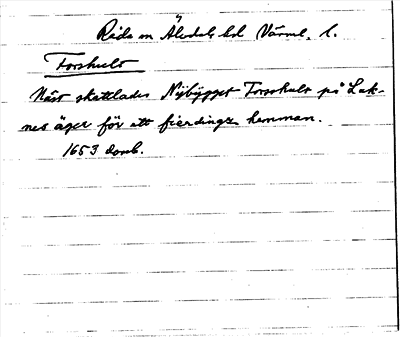 Råda sn Älvdals hd Värml. l.
Forshult
Näst skattlades Nybygget Forshult på Lak-
nes äger för ett fierdings hemman.
1653 domb.